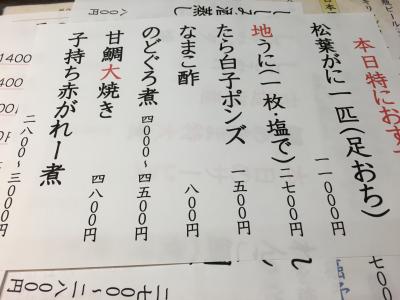 本日特におす
松葉がに一匹(足おち)
一一〇〇〇円
地うに(一枚・塩で)
二七〇〇円
たら白子ポンズ
一五〇〇円
なまこ酢
八〇〇円
のどぐろ煮
四〇〇〇~四五〇〇円
甘鯛大焼き
四八〇〇円
子持ち赤がれー煮
二八〇〇~三〇〇〇円
1400
二七〇〇~二八〇〇円
七〇〇